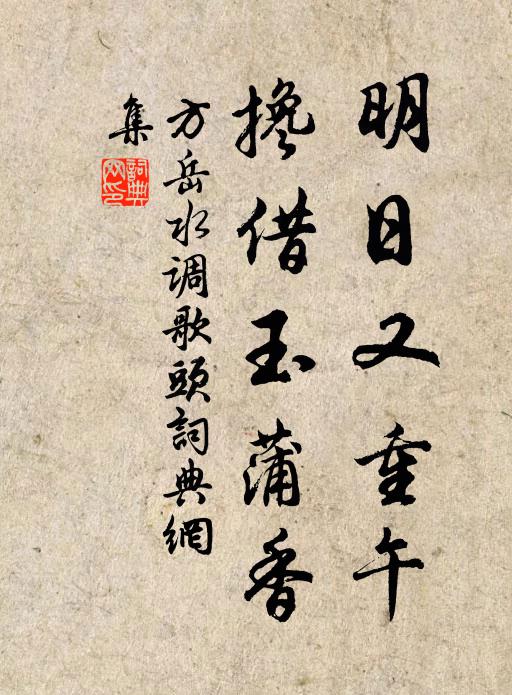 明日又重午
搀借玉蒲香
方岳水调歌头詞典網
集
詞典
网印